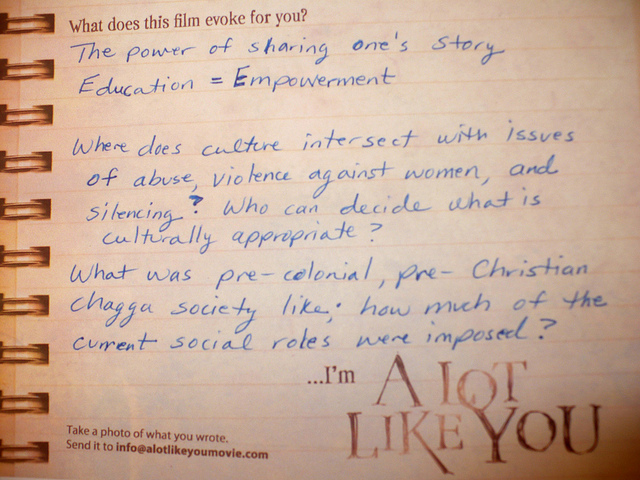 What does this film evoke for you?
The power of sharing one's story
Education = Empowerment
Where does culture intersect with issues
of abuse, violence against women, and
silencing? Who can decide what is
culturally appropriate?
What was pre-colonial, pre-Christian
Chagga society like; how much of the
current social roles were imposed?
...I'm A LOT
LIKE YOU
Take a photo of what you wrote.
Send it to info@alotlikeyoumovie.com